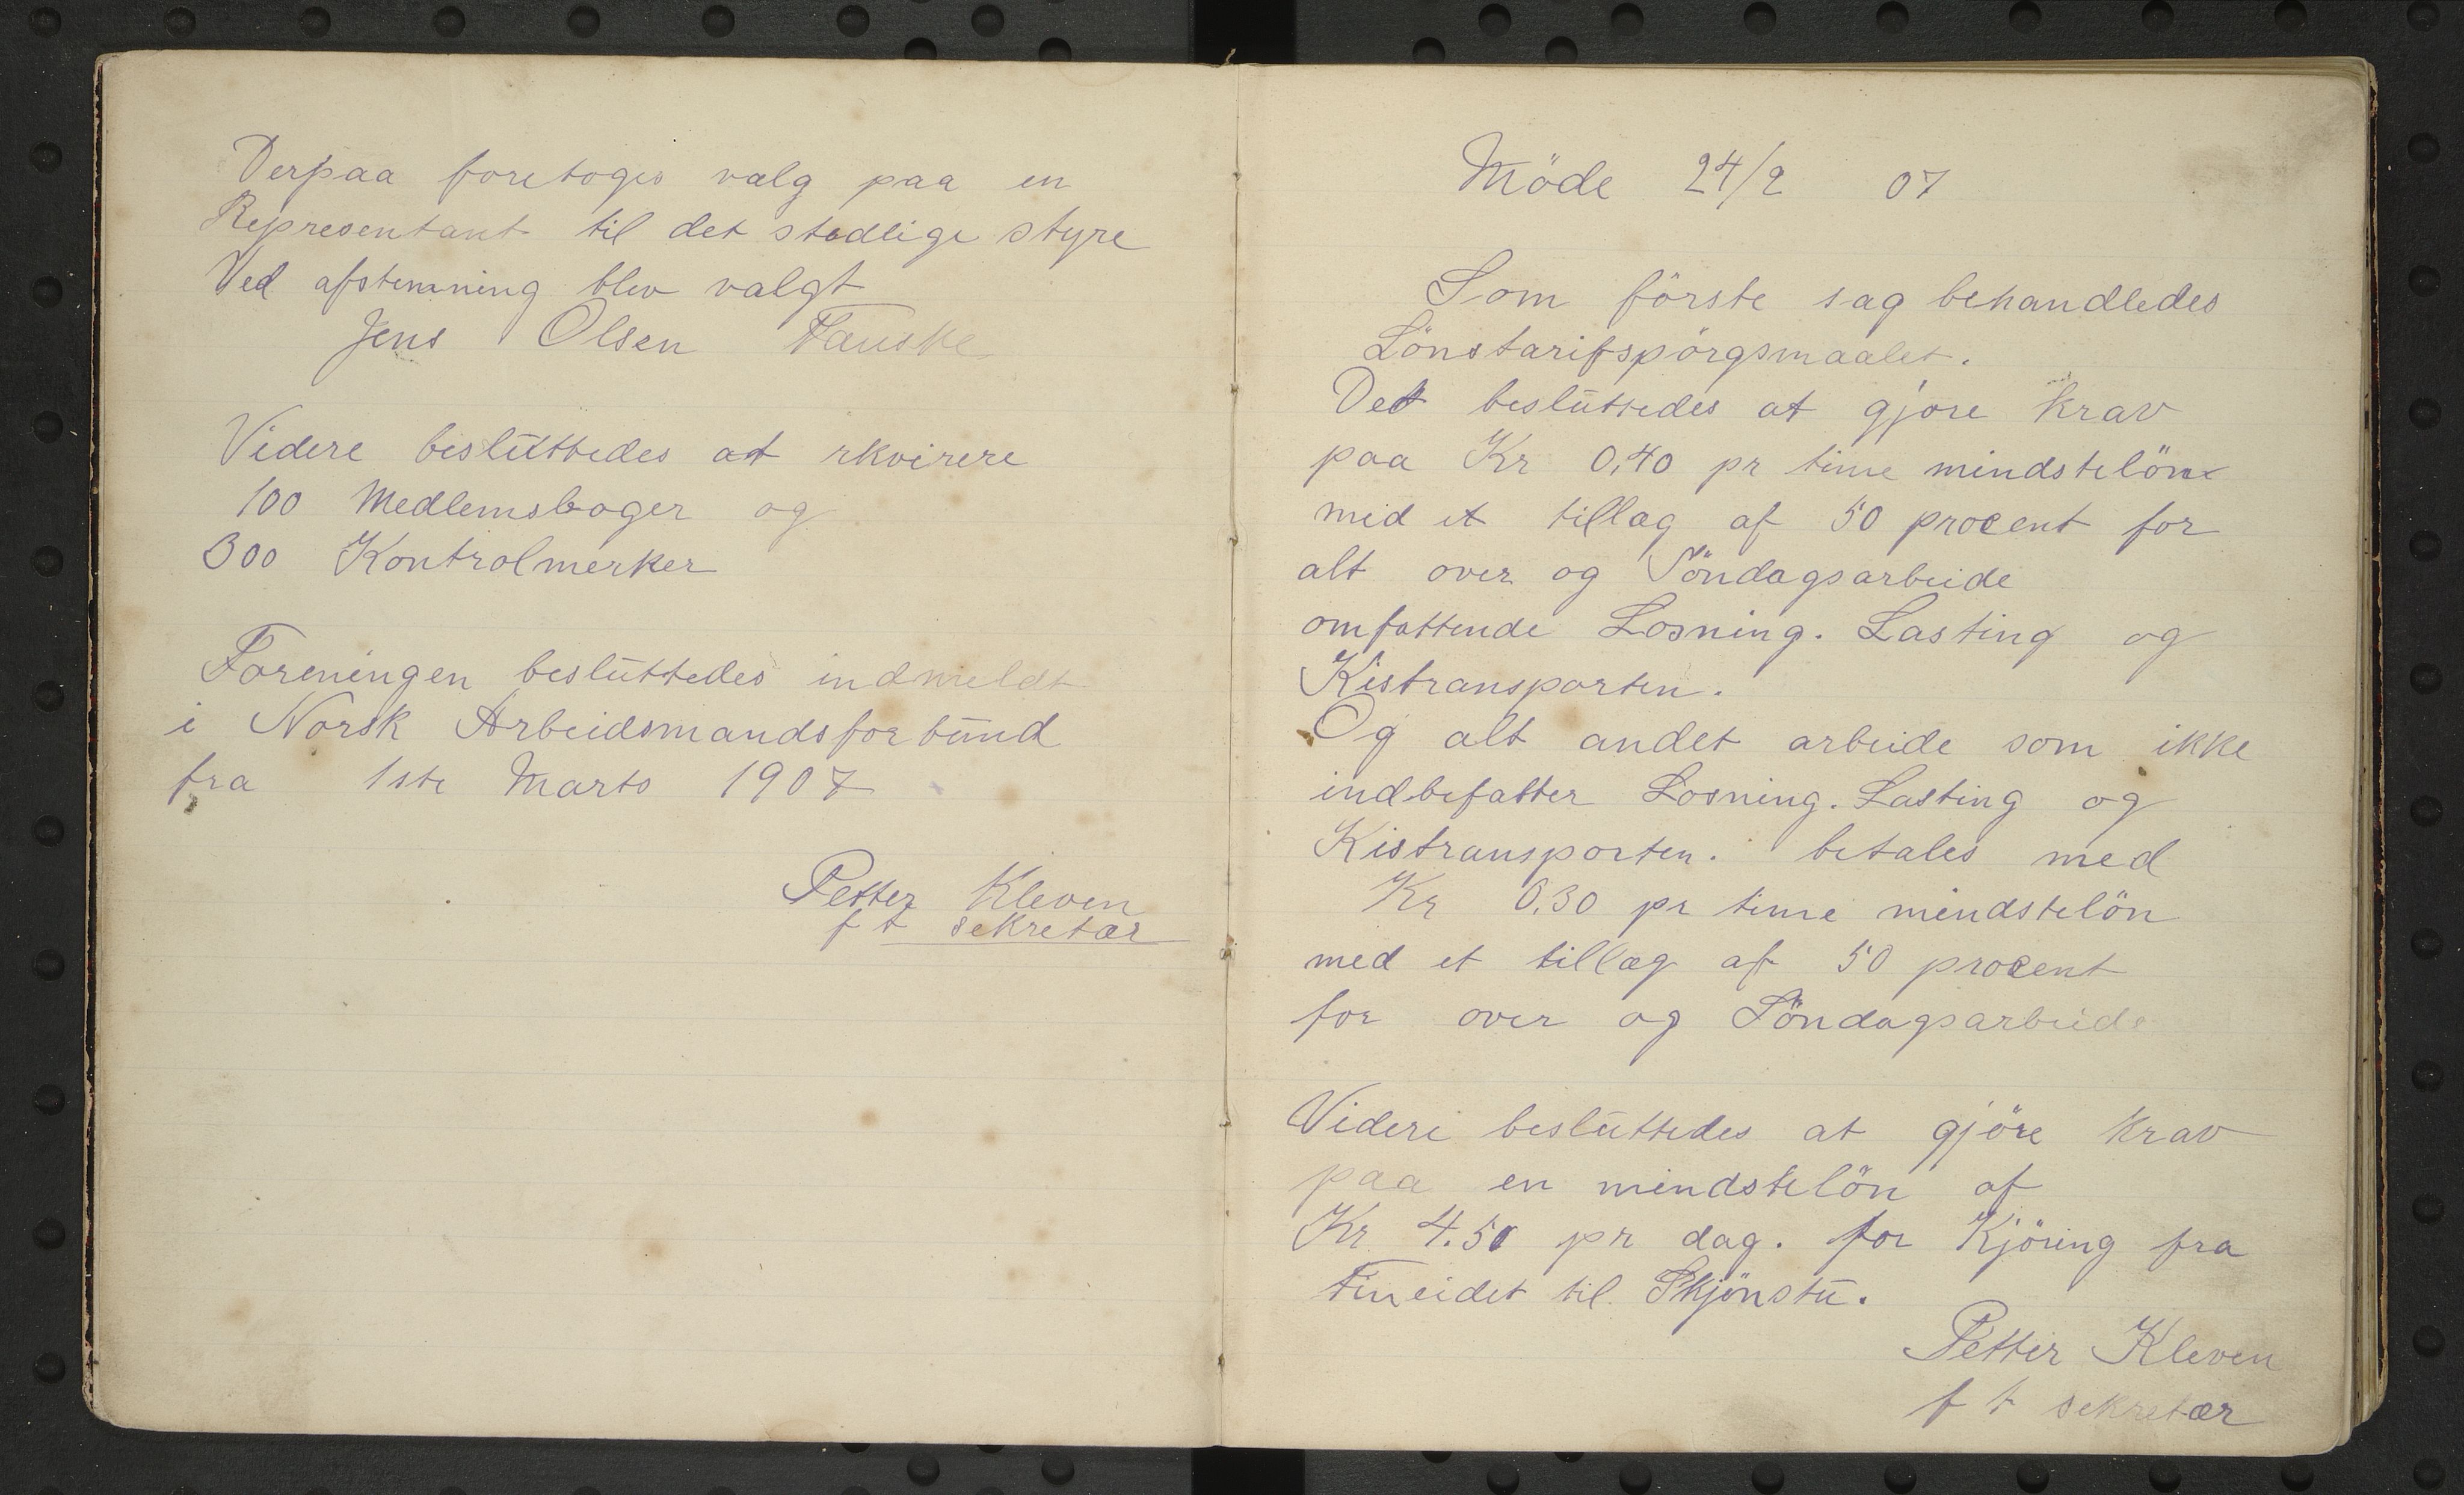 Derpaa foretoges valg paa en
Representant til det stedlige styre
Ved afstemning blev valgt
Jens Olsen Fauske
Videre beslüttedes at rkvirere
100 Medlemsboger og
300 Kontrolmerker
Foreningen beslüttedes indmeldt
i Norsk Arbeidsmandsforbünd
fra 1ste Marts 1907
Petter Kleven
f t sekretær
Möde 24/2 07
Som förste sag behandledes
Lönstarifspörgsmaalet.
Det beslüttedes at gjöre krav
paa Kr 0,40 pr time mindstelön
med et tillæg af 50 procent for
alt over og Söndagsarbeide
omfattende Losning. Lasting og
Kistransporten.
Og alt andet arbeide som ikke
indbefatter Losning. Lasting og
Kistransporten. betales med
Kr 0.30 pr time mindstelön
med et tillæg af 50 procent
for over og Söndagsarbeide
Videre beslüttedes at gjöre krav
paa en mindstelön af
Kr 4.50 pr dag. for Kjöring fra
Fineidet til Skjönstü.
Petter Kleven
f t sekretær